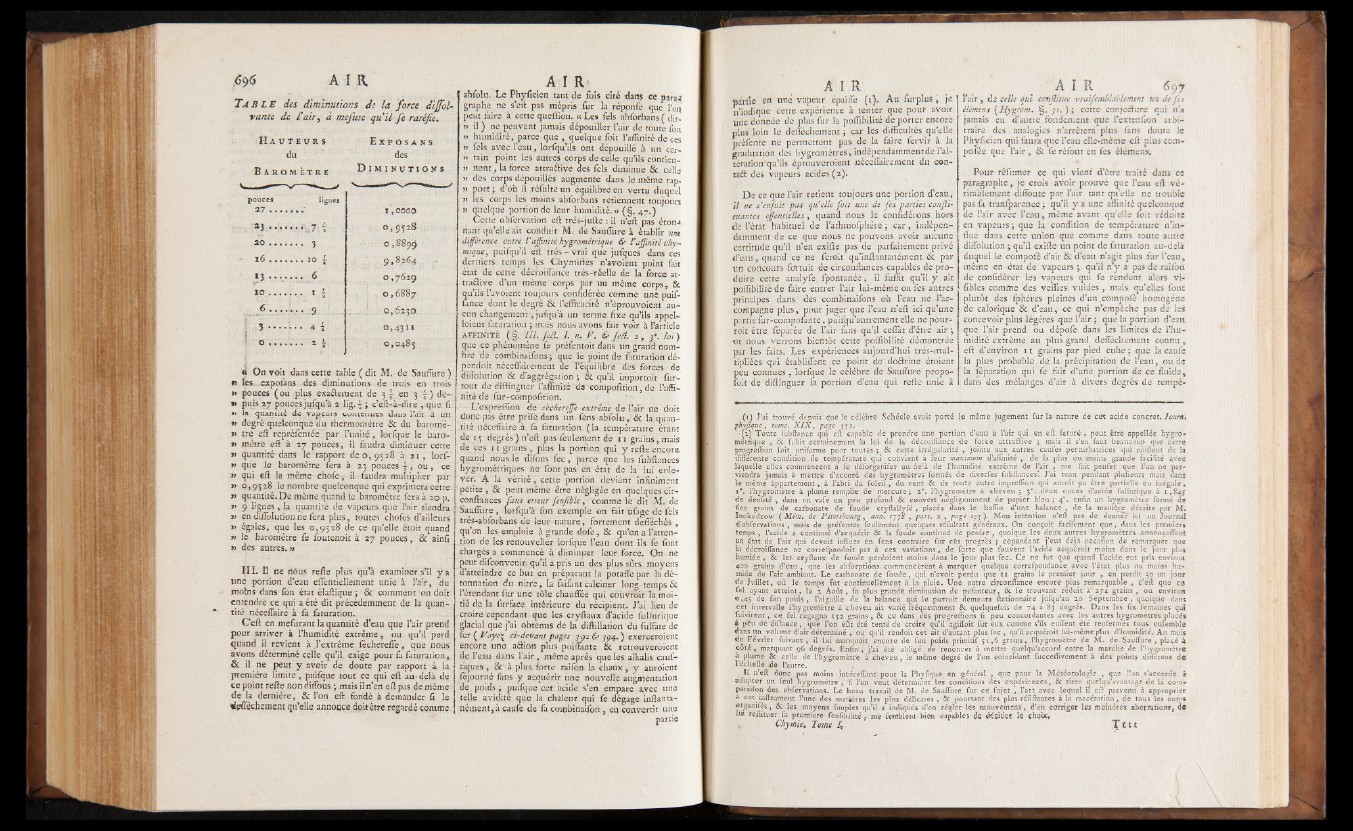 696 A I R
TABLE des diminutions de la force dissol-
vante de l'air, à mesure qu'il se raréfie.
HAUTEURS
du
BAROMÈTRE
EXPOSANS
des
DIMINUTIONS
pouces lignes
27 . . . . . . . 1,0000
23 . . . . . . . 7 ½ 0,9528
20 . . . . . . . 3 0,8899
16 . . . . . . . 10 ½ 9,8264
13 . . . . . . . 6 0,7629
10 . . . . . . . 1 ½ 0,6887
6 . . . . . . . 9 0,6230
3 . . . . . . . 4 ½ 0,4311
0 . . . . . . . 2 ½ 0,0485
« On voit dans cette table (dit M. de Saussure)
» les expofans des diminutions de trois en trois
» pouces (ou plus exactement de 3 ½ en 3 ½) de-
» puis 27 pouces jusqu'à 2 lig. ½; c'est-à-dire, que si
» la quantité de vapeurs contenues dans l'air à un
» degré quelconque du thermomètre & du baromè-
» tre est représentée par l'unité, lorsque le baro-
» mètre est à 27 pouces, il faudra diminuer cette
» quantité dans le rapport de 0,9528 à 21, lors-
» que le baromètre sera à 23 pouces ½, ou, ce
» qui est la même chose, il faudra multiplier par
» 0,9528 le nombre quelconque qui exprimera cette
» quantité. De même quand le baromètre sera à 20 p.
» 9 lignes, la quantité de vapeurs que l'air tiendra
» en dissolution ne sera plus, toutes choses d'ailleurs
» égales, que les 0,9528 de ce qu'elle étoit quand
» le baromètre se soutenoit à 27 pouces, & ainsi
» des autres. »
III. Il ne nous reste plus qu'à examiner s'il y a
une portion d'eau essentiellement unie à l'air, du
moins dans son état élastique; & comment on doit
entendre ce qui a été dit précédemment de la quan-
tité nécessaire à sa saturation.
C'est en mesurant la quantité d'eau que l'air prend
pour arriver à l'humidité extrême, ou qu'il perd
quand il revient à l'extrême sécheresse, que nous
avons déterminé celle qu'il exige pour sa saturation,
& il ne peut y avoir de doute par rapport à la
première limite, puisque tout ce qui est au-delà de
ce point reste non dissous; mais il n'en est pas de même
de la dernière, & l'on est fondé à demander si le
desséchement qu'elle annonce doit être regardé comme
A I R
absolu. Le Physicien tant de fois cité dans ce para-
graphe ne s'est pas mépris sur la réponse que l'on
peut faire à cette question. « Les sels absorbans (dit-
» il) ne peuvent jamais dépouiller l'air de toute son
» humidité, parce que, quelque soit l'affinité de ces
» sels avec l'eau, lorsqu'ils ont dépouillé à un cer-
» tain point les autres corps de celle qu'ils contien-
» nent, la force attractive des sels diminue & celle
» des corps dépouillés augmente dans le même rap-
» port; d'où il résulte un équilibre en vertu duquel
» les corps les moins absorbans retiennent toujours
» quelque portion de leur humidité. » (§. 47.)
Cette observation est très-juste: il n'est pas éton-
nant qu'elle ait conduit M. de Saussure à établir une
différence entre l'affinité hygrométrique & l'affinité chy-
mique, puisqu'il est très-vrai que jusques dans ces
derniers temps les Chymistes n'avoient point fait
état de cette décroissance très-réelle de la force at-
tractive d'un même corps par un même corps, &
qu'ils l'avoient toujours considérée comme une puis-
sance dont le degré & l'efficacité n'éprouvoient au-
cun changement, jusqu'à un terme fixe qu'ils appel-
loient saturation; mais nous avons fait voir à l'article
AFFINITÉ (§. III. sect. I. n. V. & sect. 2, 3e. loi)
que ce phénomène se présentoit dans un grand nom-
bre de combinaisons; que le point de saturation dé-
pendoit nécessairement de l'équilibre des forces de
dissolution & d'aggrégation; & qu'il importoit sur-
tout de distinguer l'affinité de composition, de l'affi-
nité de sur-composition.
L'expression de sécheresse extrême de l'air ne doit
donc pas être prise dans un sens absolu, & la quan-
tité nécessaire à sa saturation (la température étant
de 15 degrés) n'est pas seulement de 11 grains, mais
de ces 11 grains, plus la portion qui y reste encore
quand nous le disons sec, parce que les substances
hygrométriques ne sont pas en état de la lui enle-
ver. A la vérité, cette portion devient infiniment
petite, & peut même être négligée en quelques cir-
constances sans erreur sensible, comme le dit M. de
Saussure, lorsqu'à son exemple on fait usage de sels
très-absorbans de leur nature, fortement desséchés,
qu'on les emploie à grande dose, & qu'on a l'atten-
tion de les renouveller lorsque l'eau dont ils se sont
chargés a commencé à diminuer leur force. On ne
peut disconvenir qu'il a pris un des plus sûrs moyens
d'atteindre ce but en préparant la potasse par la dé-
tonnation du nitre, la faisant calciner long-temps &
l'étendant sur une tôle chauffée qui couvroit la moi-
tié de la surface intérieure du récipient. J'ai lieu de
croire cependant que les crystaux d'acide sulfurique
glacial que j'ai obtenus de la distillation du sulfate de
fer (Voyez ci-devant pages 392 & 394.) exerceroient
encore une action plus puissante & retrouveroient
de l'eau dans l'air, même après que les alkalis caus-
tiques, & à plus forte raison la chaux, y auroient
séjourné sans y acquérir une nouvelle augmentation
de poids; puisque cet acide s'en empare avec une
telle avidité que la chaleur qui se dégage instanta-
nément, à cause de sa combinaison, en convertit une
partie
A I R
partie en une vapeur épaisse (1). Au surplus, je
n'indique cette expérience à tenter que pour avoir
une donnée de plus sur la possibilité de porter encore
plus loin le desséchement; car les difficultés qu'elle
présente ne permettront pas de la faire servir à la
graduation des hygromètres, indépendamment de l'al-
tération qu'ils éprouveroient nécessairement du con-
tact des vapeurs acides (2).
De ce que l'air retient toujours une portion d'eau,
il ne s'ensuit pas qu'elle soit une de ses parties consti-
tuantes essentielles, quand nous le considérons hors
de l'état habituel de l'athmosphère; car, indépen-
damment de ce que nous ne pouvons avoir aucune
certitude qu'il n'en existe pas de parfaitement privé
d'eau, quand ce ne seroit qu'instantanément & par
un concours fortuit de circonstances capables de pro-
duire cette analyse spontanée, il suffit qu'il y ait
possibilité de faire entrer l'air lui-même ou ses autres
principes dans des combinaisons où l'eau ne l'ac-
compagne plus, pour juger que l'eau n'est ici qu'une
partie sur-composante, puisqu'autrement elle ne pour-
roit être séparée de l'air sans qu'il cessât d'être air;
or nous verrons bientôt cette possibilité démontrée
par les faits. Les expériences aujourd'hui très-mul-
tipliées qui établissent ce point de doctrine étoient
peu connues, lorsque le célèbre de Saussure propo-
soit de distinguer la portion d'eau qui reste unie à
A I R 697
l'air, de celle qui constitue vraisemblablement un de ses
élémens (Hygrom. §. 51.); cette conjecture qui n'a
jamais eu d'autre fondement que l'extension arbi-
traire des analogies n'arrêtera plus sans doute le
Physicien qui saura que l'eau elle-même est plus com-
posée que l'air, & se résout en ses élémens.
Pour résumer ce qui vient d'être traité dans ce
paragraphe, je crois avoir prouvé que l'eau est vé-
ritablement dissoute par l'air tant qu'elle ne trouble
pas sa transparence; qu'il y a une affinité quelconque
de l'air avec l'eau, même avant qu'elle soit réduite
en vapeurs; que la condition de température n'in-
flue dans cette union que comme dans toute autre
dissolution; qu'il existe un point de saturation au-delà
duquel le composé d'air & d'eau n'agit plus sur l'eau,
même en état de vapeurs; qu'il n'y a pas de raison
de considérer les vapeurs qui se rendent alors vi-
sibles comme des vessies vuides, mais qu'elles sont
plutôt des sphères pleines d'un composé homogène
de calorique & d'eau, ce qui n'empêche pas de les
concevoir plus légères que l'air; que la portion d'eau
que l'air prend ou dépose dans les limites de l'hu-
midité extrême au plus grand desséchement connu,
est d'environ 11 grains par pied cube; que la cause
la plus probable de la précipitation de l'eau, ou de
la séparation qui se fait d'une portion de ce fluide,
dans des mélanges d'air à divers degrés de tempé-
(1) J'ai trouvé depuis que le célèbre Schéele avoit porté le même jugement sur la nature de cet acide concret. Journ.
physique, tome. XIX, page
(2) Toute substance qui est capable de prendre une portion d'eau à l'air qui en est saturé, peut être appellée hygro-
métrique, & subit certainement la loi de la décroissance de force attractive; mais il s'en faut beaucoup que cette
progression soit uniforme pour toutes; & cette irrégularité, jointe aux autres causes perturbatrices qui naissent de la
différente condition de température qui convient à leur maximum d'affinité, de la plus ou moins grande facilité avec
laquelle elles commencent à se désorganiser au-delà de l'humidité extrême de l'air, me fait penser que l'on ne par-
viendra jamais à mettre d'accord des hygromètres formés de diverses substances. J'ai tenu pendant plusieurs mois dans
le même appartement, à l'abri du soleil, du vent & de toute autre impression qui auroit pu être partielle ou inégale,
1°. l'hygromètre à plume remplie de mercure; 2°. l'hygromètre à cheveu; 3°. deux onces d'acide sulfurique à 1,845
de densité, dans un vase un peu profond & couvert négligemment de papier bleu; 4°. enfin un hygromètre formé de
six grains de carbonate de soude crystallysé, placés dans le bassin d'une balance, de la manière décrite par M.
Inokodzow (Mém. de Pétersbourg, ann. 1778, part. 2, page ). Mon intention n'est pas de donner ici un Journal
d'observations, mais de présenter seulement quelques résultats généraux. On conçoit facilement que, dans les premiers
temps, l'acide a continué d'acquérir & la soude continué de perdre, quoique les deux autres hygromètres annonçassent
un état de l'air qui devoit influer en sens contraire sur ces progrès; cependant j'eus déjà occasion de remarquer que
la décroissance ne correspondoit pas à ces variations, de sorte que souvent l'acide acquéroit moins dans le jour plus
humide, & les crystaux de soude perdoient moins dans le jour plus sec. Ce ne fut que quand l'acide eut pris environ
400 grains d'eau, que ses absorptions commencèrent à marquer quelque correspondance avec l'état plus ou moins hu-
mide de l'air ambiant. Le carbonate de soude, qui n'avoit perdu que 11 grains le premier jour, en perdit 50 un jour
de Juillet, où le temps fut continuellement à la pluie. Une autre circonstance encore plus remarquable, c'est que ce
sel ayant atteint, le 2 Août, sa plus grande diminution de pesanteur, & se trouvant réduit à 274 grains, ou environ
0,45 de son poids, l'aiguille de la balance qui le portoit demeura stationnaire jusqu'au 20 Septembre, quoique dans
cet intervalle l'hygromètre à cheveu ait varié fréquemment & quelquefois de 74 à 85 degrés. Dans les six semaines qui
suivirent, ce sel regagna 152 grains, & ce dans des progressions si peu concordantes avec les autres hygromètres placés
à peu de distance, que l'on eût été tenté de croire qu'il agissoit sur eux comme s'ils eussent été renfermés tous ensemble
dans un volume d'air déterminé, ou qu'il rendoit cet air d'autant plus sec, qu'il acquéroit lui-même plus d'humidité. Au mois
de Février suivant, il lui manquoit encore de son poids primitif 51,6 grains, l'hygromètre de M. de Saussure, placé à
côté, marquant 96 degrés. Enfin, j'ai été obligé de renoncer à mettre quelqu'accord entre la marche de l'hygromètre
à plume & celle de l'hygromètre à cheveu, le même degré de l'un coïncidant successivement à des points différens de
l'échelle de l'autre.
Il n'est donc pas moins intéressant pour la Physique en général, que pour la Météorologie, que l'on s'accorde à
adopter un seul hygromètre, si l'on veut déterminer les conditions des expériences, & tirer quelqu'avantage de la com-
paraison des observations. Le beau travail de M. de Saussure sur ce sujet, l'art avec lequel il est parvenu à approprier
à cet instrument l'une des matières les plus délicates, & pourtant des plus résistantes à la macération, de tous les corps
organisés, & les moyens simples qu'il a indiqués d'en régler les mouvemens, d'en corriger les moindres aberrations, de
lui restituer sa première sensibilité, me semblent bien capables de décider le choix.
Chymie. Tome I. T t t t